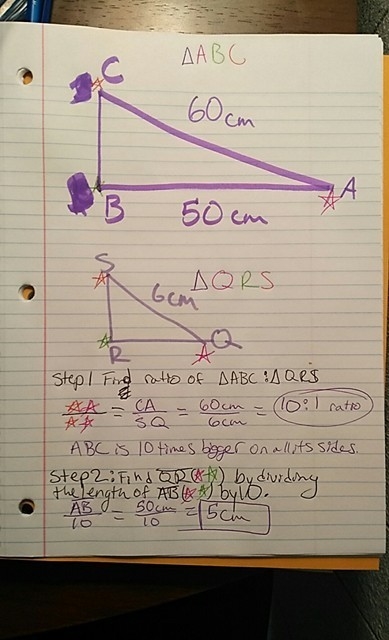 △ABC
C
60cm
A
B
50cm
△QRS
S
6cm
R
Q
Step 1 Find ratio of △ABC:△QRS
☆☆/☆☆ = CA/SQ = 60cm/6cm = 10:1 ratio
ABC is 10 times bigger on all its sides.
Step 2: Find QR (☆☆) by dividing
the length of AB (☆☆) by 10.
AB/10 = 50cm/10 = 5cm